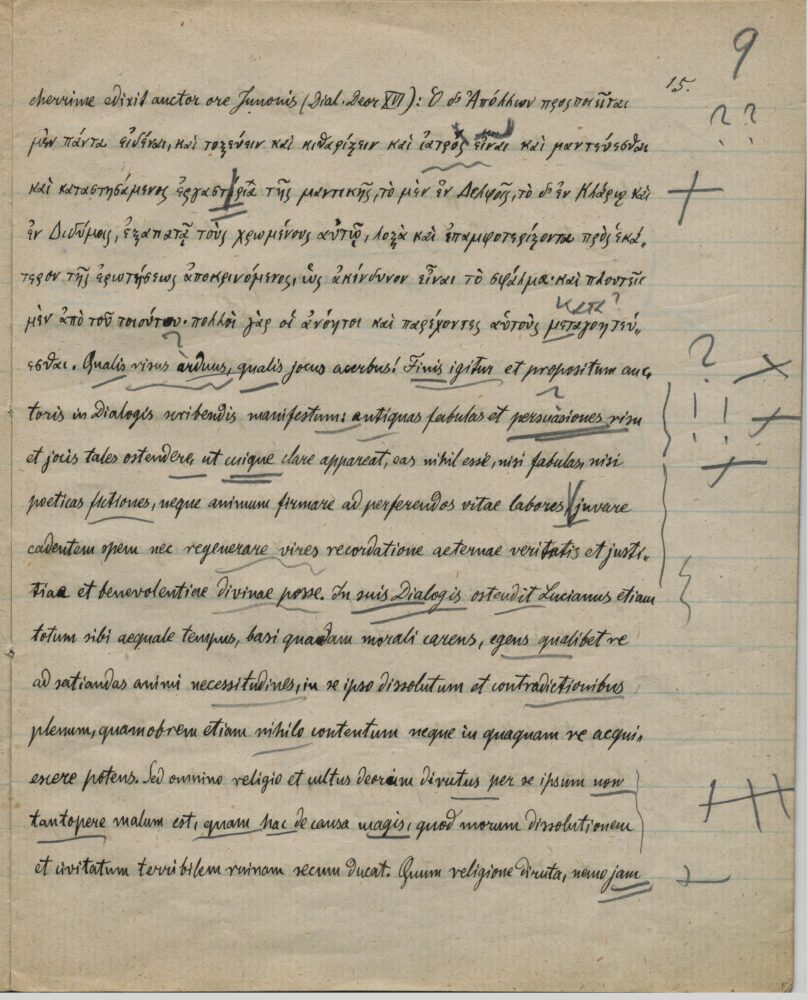 9
15.
cherrime edixit auctor ore Junonis (Dial. Deor XVI): Ὁ δ' Ἀπόλλων προςποιεῖται
? ?
μὲν πάντα εἰδέναι, καὶ τοξεύειν καὶ κιθαρίζειν καὶ ἰατρὸς εἶναι καὶ μαντεύεσθαι
καὶ καταστησάμενος ἐργαστήρια τῆς μαντικῆς, τὸ μὲν ἐν Δελφοῖς, τὸ δ' ἐν Κλάρῳ καὶ
ἐν Διδύμοις, ἐξαπατᾷ τοὺς χρωμένους αὐτῷ, λοξὰ καὶ ἐπαμφοτερίζοντα πρὸς ἑκά-
τερον τῆς ἐρωτήσεως ἀποκρινόμενος, ὡς ἀκίνδυνον εἶναι τὸ σφάλμα· καὶ πλουτεῖ
μὲν ἀπὸ τοῦ τοιούτου· πολλοὶ γὰρ οἱ ἀνόητοι καὶ παρέχοντες αὑτοὺς μεταγοητεύ-
εσθαι. Qualis risus arduus, qualis jocus acerbus! Finis igitur et propositum auc-
toris in Dialogis scribendis manifestum: antiquas fabulas et persuasiones risu
et jocis tales ostendere, ut cuique clare appareat, eas nihil esse, nisi fabulas, nisi
poeticas fictiones, neque animum firmare ad perferendos vitae labores, juvare
cadentem opem nec regenerare vires recordatione aeternae veritatis et justi-
tiae et benevolentiae divinae posse. In suis Dialogis ostendit Lucianus etiam
totum sibi aequale tempus, basi quadam morali carens, egens qualibet re
ad satiandas animi necessitudines, in se ipso dissolutum et contradictionibus
plenum, quamobrem etiam nihilo contentum neque in quaquam re acqui-
escere potens. Sed omnino religio et cultus deorum dirutus per se ipsum non
tantopere malum est, quam hac de causa magis, quod morum dissolutionem
et civitatum terribilem ruinam secum ducat. Quum religione diruta, nemo jam